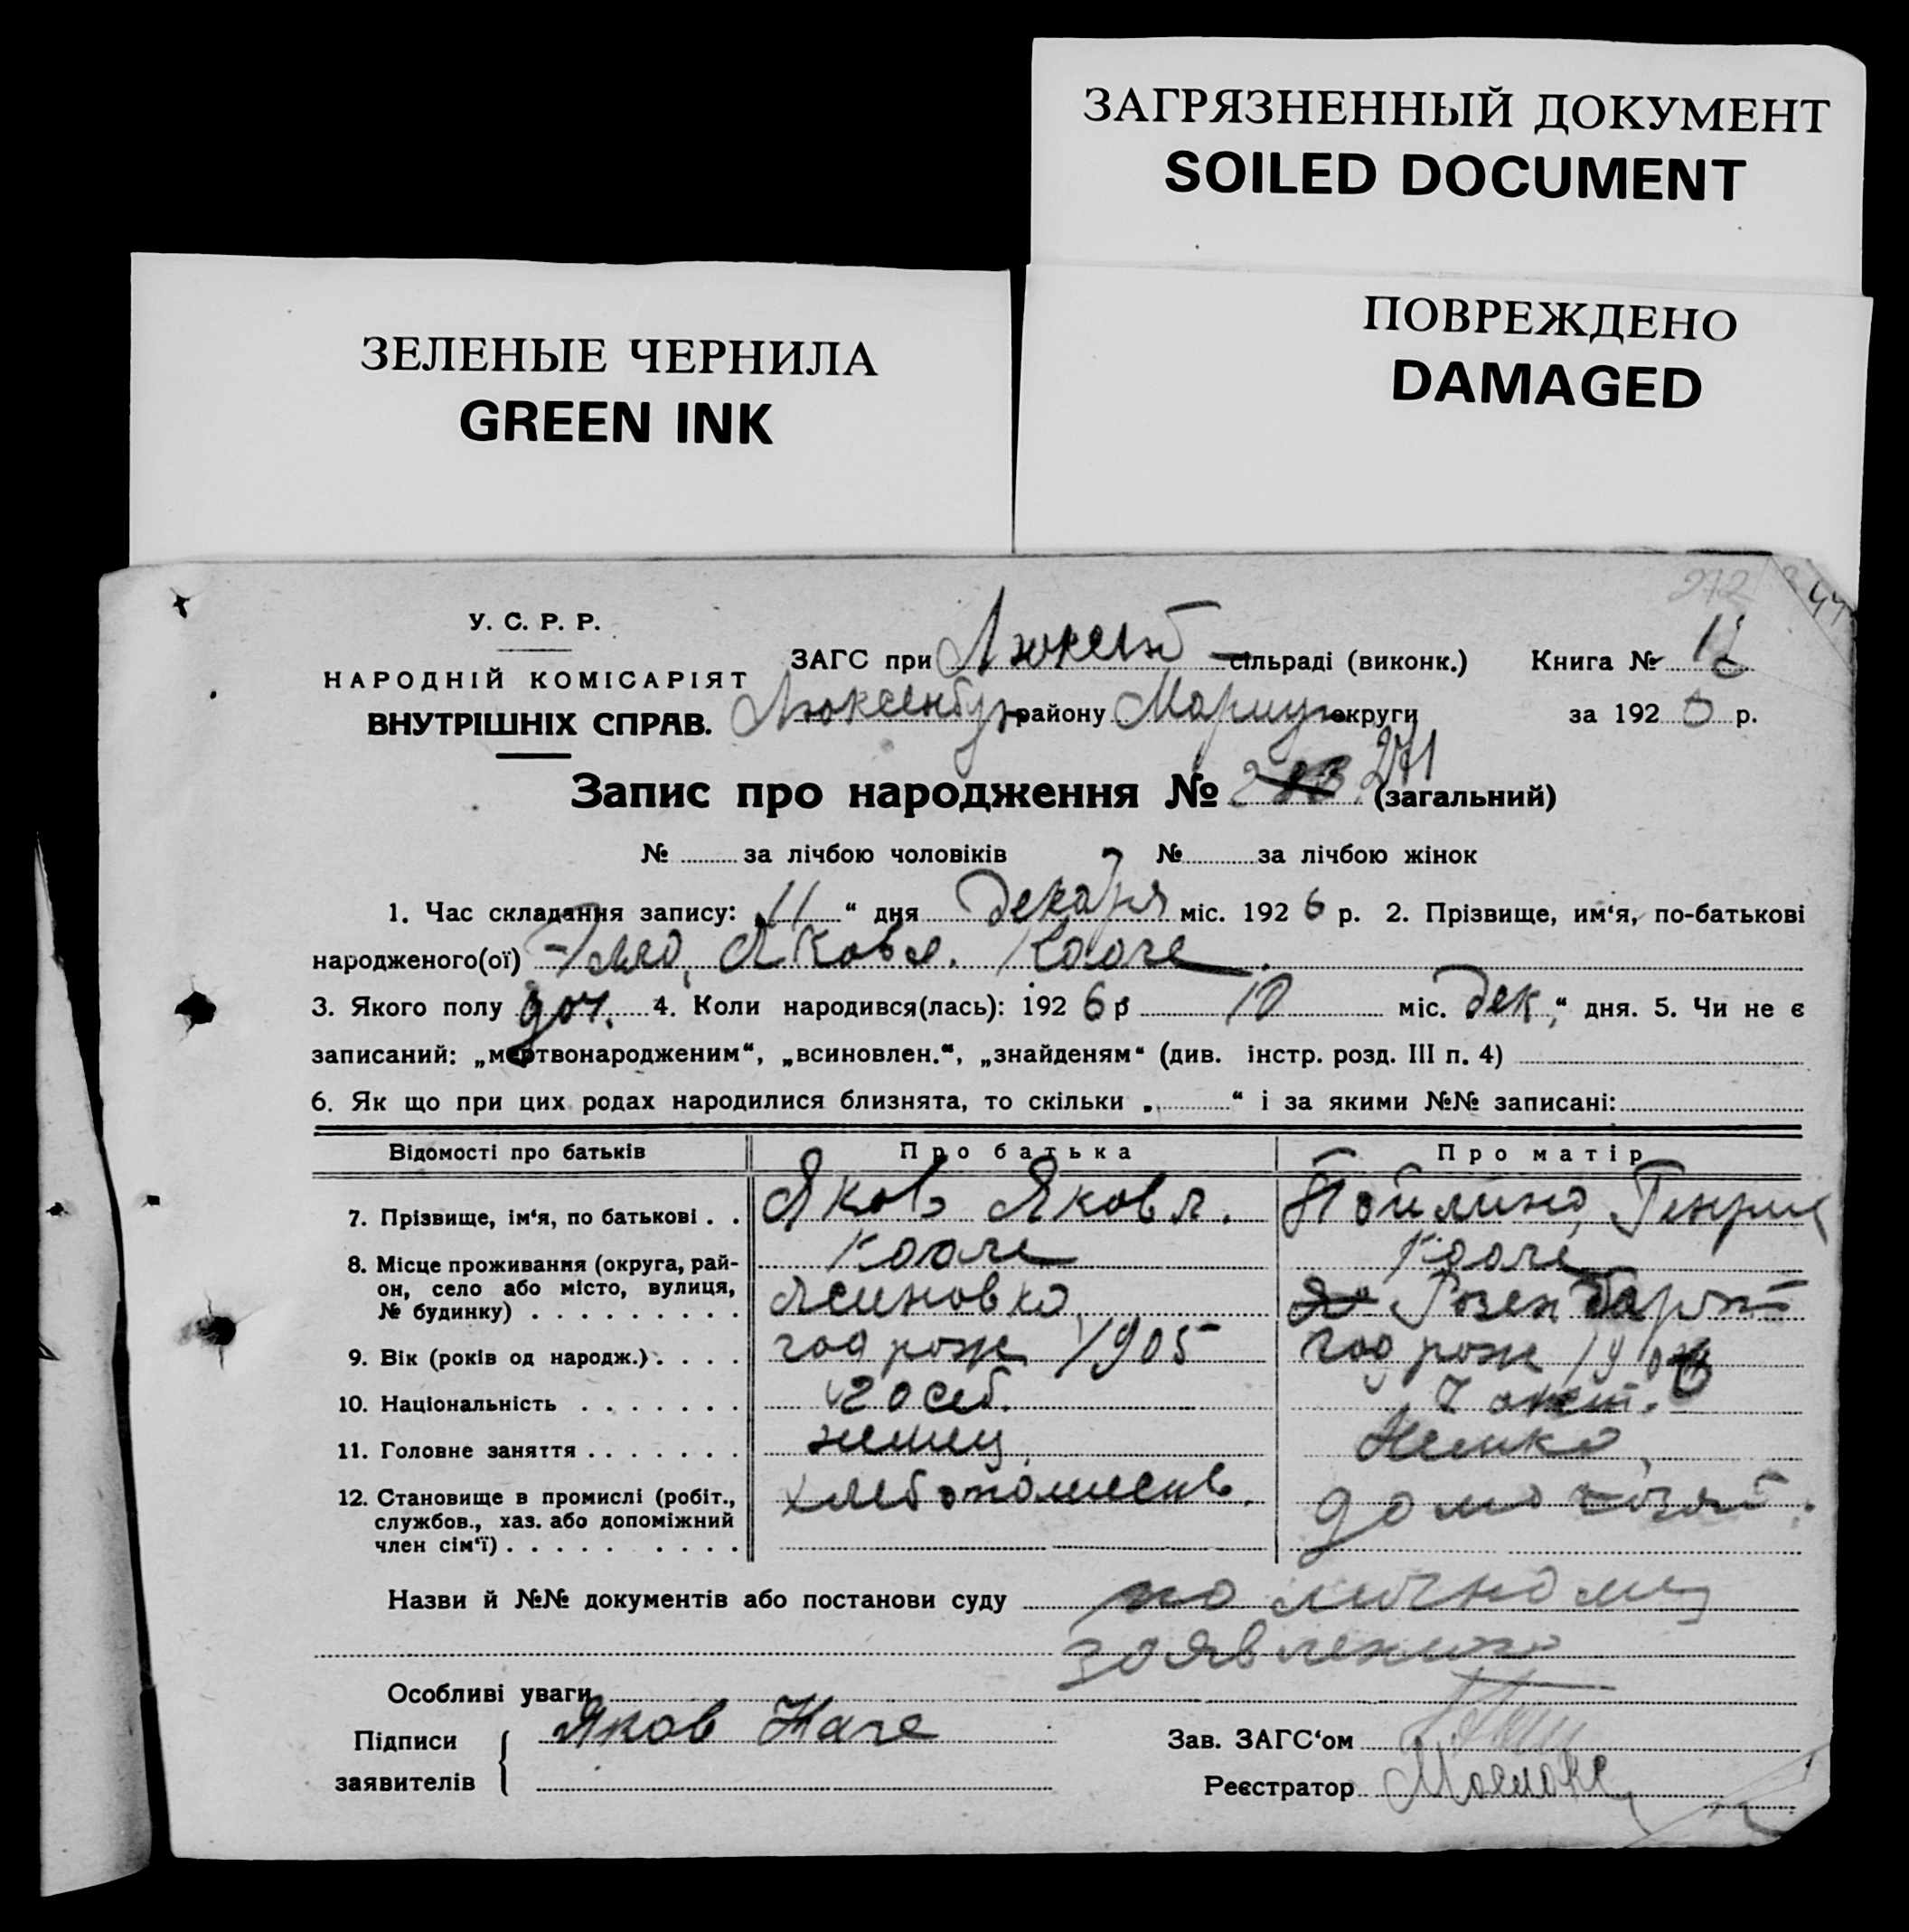 ЗАГРЯЗНЕННЫЙ ДОКУМЕНТ
SOILED DOCUMENT
ЗЕЛЕНЫЕ ЧЕРНИЛА
GREEN INK
ПОВРЕЖДЕНО
DAMAGED
272
У. С. Р. Р.
НАРОДНІЙ КОМІСАРІЯТ
ВНУТРІШНІХ СПРАВ.
ЗАГС при Люксемб сільраді (виконк.) Книга № 12
Люксенбур району Мариуп округи за 192 6 р.
Запис про народження № 271 (загальний)
№ за лічбою чоловіків № за лічбою жінок
1. Час складання запису: „ 11 “ дня Декабря міс. 192 6 р. 2. Прізвище, им‘я, по-батькові
народженого(ої) Яковл.
3. Якого полу доч. 4. Коли народився(лась): 192 6 р 10 міс. Дек „“ дня. 5. Чи не є
записаний: „мертвонародженим“, „всиновлен.“, „знайденям“ (див. інстр. розд. III п. 4)
6. Як що при цих родах народилися близнята, то скільки „ “ і за якими №№ записані:
Відомості про батьків Про батька Про матір
7. Прізвище, ім‘я, по батькові . . Яков Яковл. Генрих
8. Місце проживання (округа, рай-
он, село або місто, вулиця,
№ будинку) . . . . . . . . . Ясиновка Розенбарт
9. Вік (років од народж.) . . . . год рож 1905 год рож
10. Національність . . . . . . .
11. Головне заняття . . . . . . . немец Немка
12. Становище в промислі (робіт.,
службов., хаз. або допоміжний
член сім‘ї) . . . . . . . . . домохозяй.
Назви й №№ документів або постанови суду по личному
заявлению
Особливі уваги
Підписи Яков Наге Зав. ЗАГС‘ом
заявителів Реєстратор